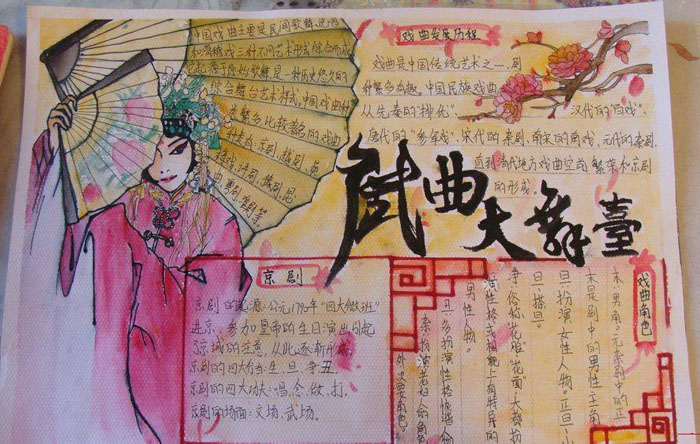 中国戏曲主要是民间歌舞、说唱
和滑稽戏三种不同艺术形式综合而成
它起源于原始歌舞，是一种历史悠久的
综合舞台艺术样式，中国戏曲种
类繁多比较著名的戏曲
种类有：京剧、越剧、
曲剧、粤剧、淮剧等。
戏曲发展历程
戏曲是中国传统艺术之一，剧
种繁多有趣。中国民族戏曲，
从先秦的"俳优"、汉代的"百戏"、
唐代的"参军戏"、宋代的杂剧、南宋的南戏、元代的杂剧，
直到清代地方戏曲空前繁荣和京剧
的形成。
戲曲大舞臺
京剧
京剧的起源：公元1790年"四大徽班"
进京，参加皇帝的生日演出引起
京城的注意，从此逐渐形成。
京剧的四大行当：生、旦、净、丑
京剧的四大功夫：唱、念、做、打。
京剧的场面：文场、武场。
戏曲角色
末，男角。元杂剧中的正
末是剧中的男性主角
旦，扮演女性人物。正旦、
旦、搽旦。
净，俗称"花脸""花面"大都扮
演性格或相貌上有特异的
男性人物。
丑，